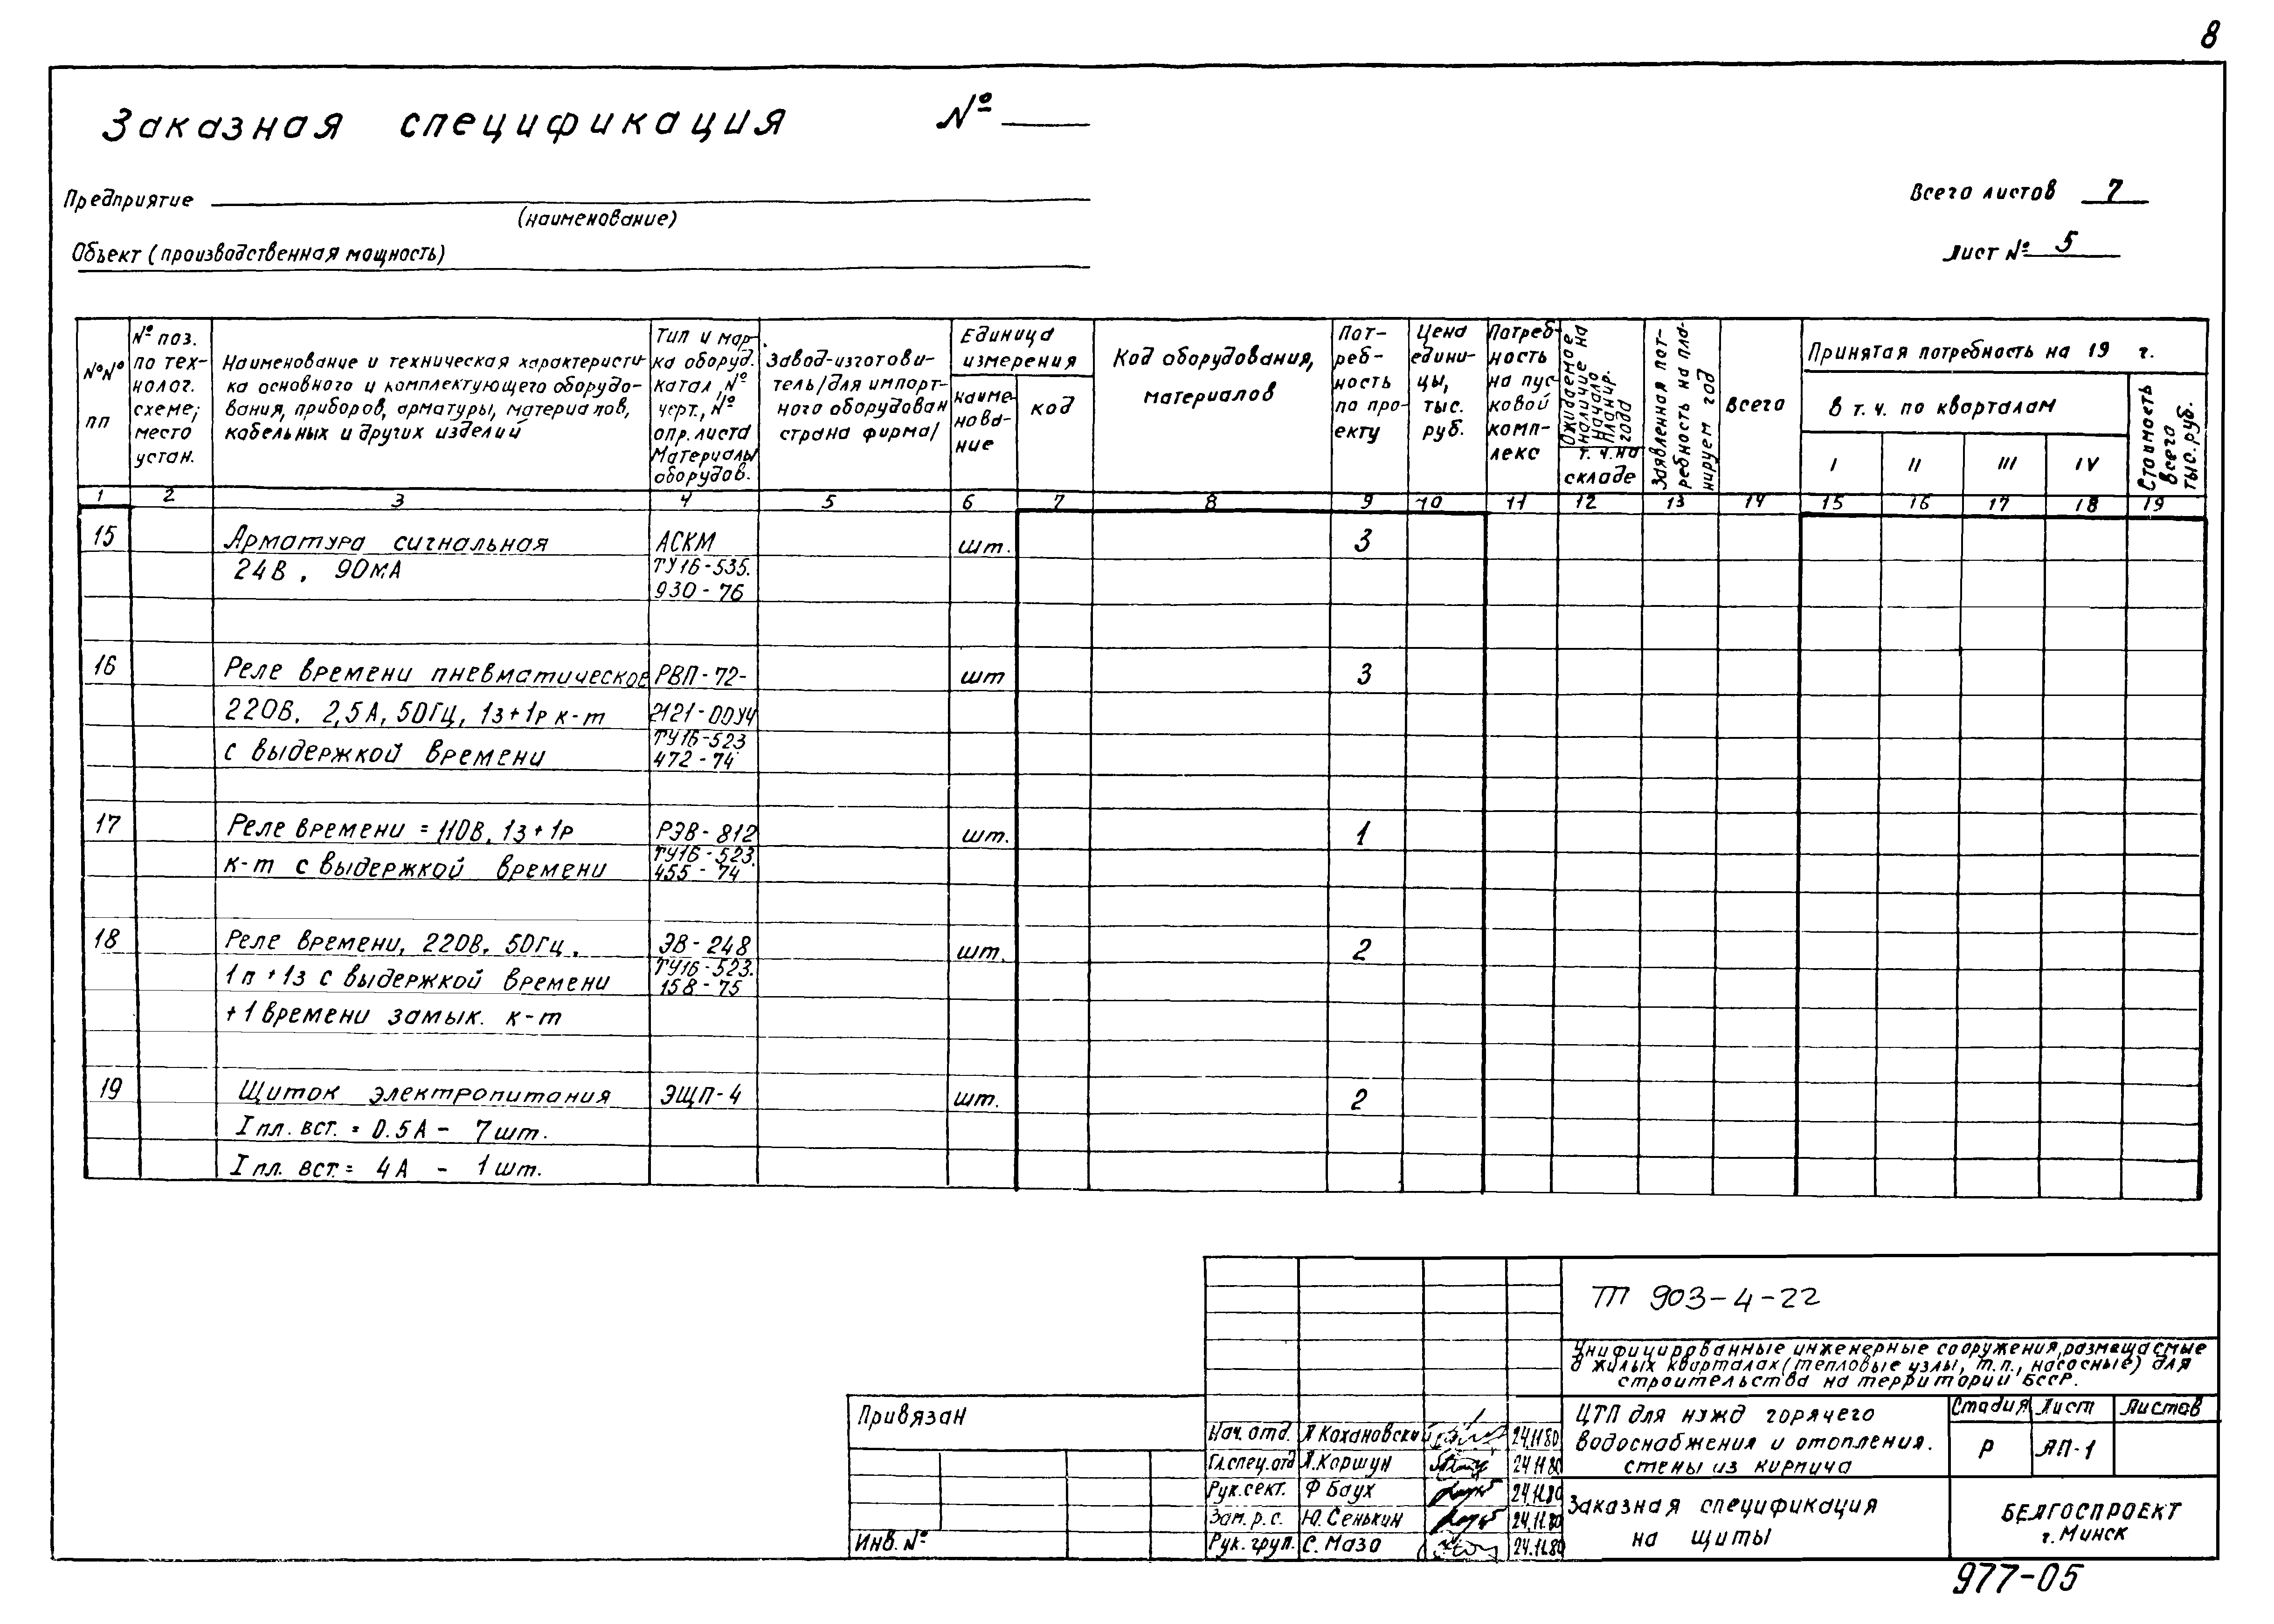 8
Заказная спецификация №
Предприятие
(наименование)
Всего листов 7
Объект (производственная мощность)
Лист № 5
№№ пп
№ поз. по технолог. схеме; место устан.
Наименование и техническая характеристи-
ка основного и комплектующего оборудо-
вания, приборов, арматуры, материалов,
кабельных и других изделий
Тип и мар-
ка оборуд.
катал, №
черт., №
опр. листа
Материалы
оборудов.
Завод-изготови-
тель/для импорт-
ного оборудован
страна фирма/
Единица
измерения
наиме-
нова-
ние
код
Код оборудования,
материалов
Пот-
реб-
ность
по про-
екту
Цена
едини-
цы,
тыс.
руб.
Потреб-
ность
на пус-
ковой
комп-
лекс
Ожидаемое
наличие на
начало
планир.
года
т. ч. на
складе
Заявленная пот-
ребность на пла-
нируем год
Всего
Принятая потребность на 19 г.
в т. ч. по кварталам
I II III IV
Стоимость
всего
тыс. руб.
1 2 3 4 5 6 7 8 9 10 11 12 13 14 15 16 17 18 19
15 Арматура сигнальная АСКМ шт. 3
24В, 90мА ТУ16-535.
930-76
16 Реле времени пневматическое РВП-72- шт 3
220В, 2,5А, 50Гц, 1з+1р к-т 2121-00У4
ТУ16-523
с выдержкой времени 472-74
17 Реле времени =110В, 1з+1р РЭВ-812 шт. 1
ТУ16-523.
к-т с выдержкой времени 455-74
18 Реле времени, 220В, 50Гц, ЭВ-248 шт. 2
ТУ16-523.
1п+1з с выдержкой времени 158-75
+1 времени замык. к-т
19 Щиток электропитания ЭЩП-4 шт. 2
I пл. вст. = 0.5А - 7шт.
I пл. вст. = 4А - 1шт.
ТП 903-4-22
Унифицированные инженерные сооружения, размещаемые
в жилых кварталах (тепловые узлы, т.п., насосные) для
строительства на территории БССР.
Привязан
Инв. №
Нач. отд. Л Кохановский 24.11.80
Гл. спец. отд Л. Коршун 24.11.80
Рук. сект. Ф Баух 24.11.80
Зам. р. с. Ю. Сенькин 24.11.80
Рук. груп. С. Мазо 24.11.80
ЦТП для нужд горячего
водоснабжения и отопления.
стены из кирпича
Стадия Лист Листов
Р АП-1
Заказная спецификация
на щиты
БЕЛГОСПРОЕКТ
г. Минск
977-05